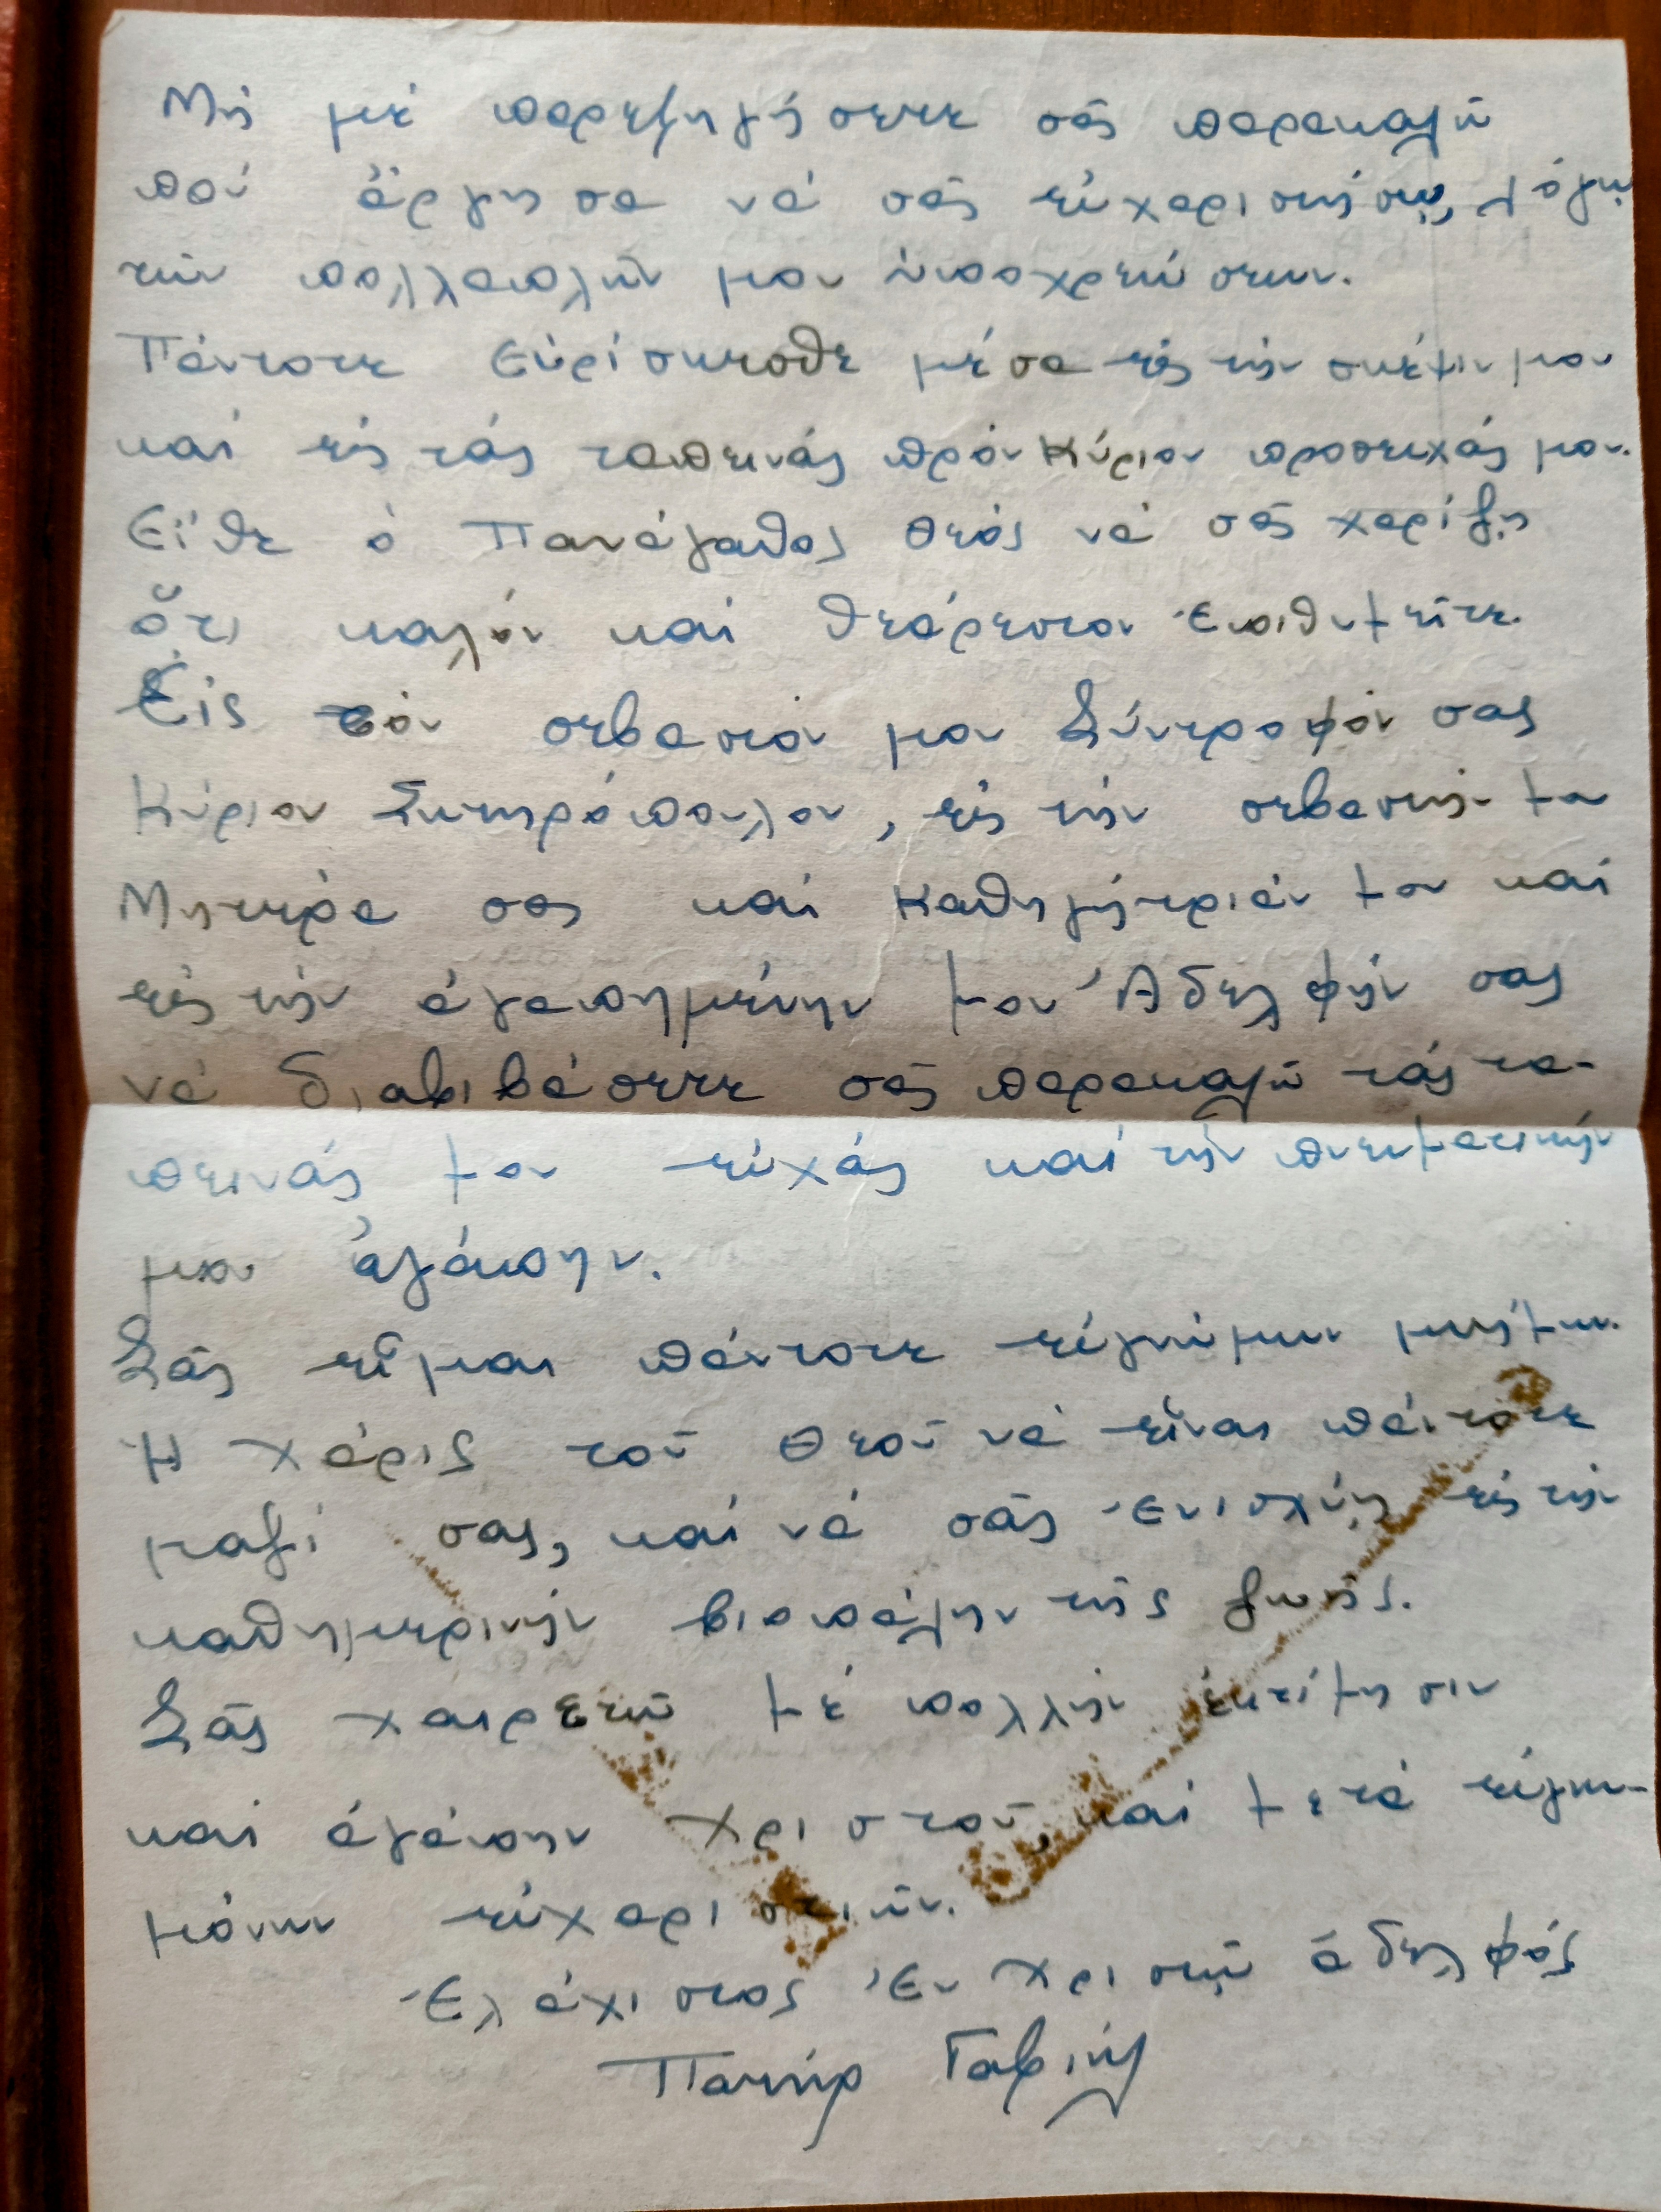 Μή μέ παρεξηγήσετε σᾶς παρακαλῶ
πού ἄργησα νά σᾶς εὐχαριστήσω, λόγῳ
τῶν πολλαπλῶν μου ὑποχρεώσεων.
Πάντοτε Εὑρίσκεσθε μέσα εἰς τήν σκέψιν μου
καί εἰς τάς ταπεινάς πρόν Κύριον προσευχάς μου.
Εἴθε ὁ Πανάγαθος Θεός νά σᾶς χαρίζῃ
ὅτι καλόν καί θεάρεστον Ἐπιθυμεῖτε.
Εἰς τόν σεβαστόν μου Σύντροφόν σας
Κύριον Σωτηρόπουλον, εἰς τήν σεβαστήν μου
Μητέρα σας καί Καθηγήτριάν μου καί
εἰς τήν ἀγαπημένην μου Ἀδελφήν σας
νά διαβιβάσετε σᾶς παρακαλῶ τάς τα-
πεινάς μου εὐχάς καί τήν πνευματικήν
μου ἀγάπην.
Σᾶς εἶμαι πάντοτε εὐγνώμων μνήμων.
Η Χάρις τοῦ Θεοῦ νά εἶναι πάντοτε
μαζί σας, καί νά σᾶς Ἐνισχύῃ εἰς τήν
καθημερινήν βιοπάλην τῆς ζωῆς.
Σᾶς χαιρετῶ μέ πολλήν ἐκτίμησιν
καί ἀγάπην Χριστοῦ, καί μετά εὐγνω-
μόνων εὐχαριστιῶν.
Ἐλάχιστος Ἐν Χριστῷ ἀδελφός
Πατήρ Γαβριήλ